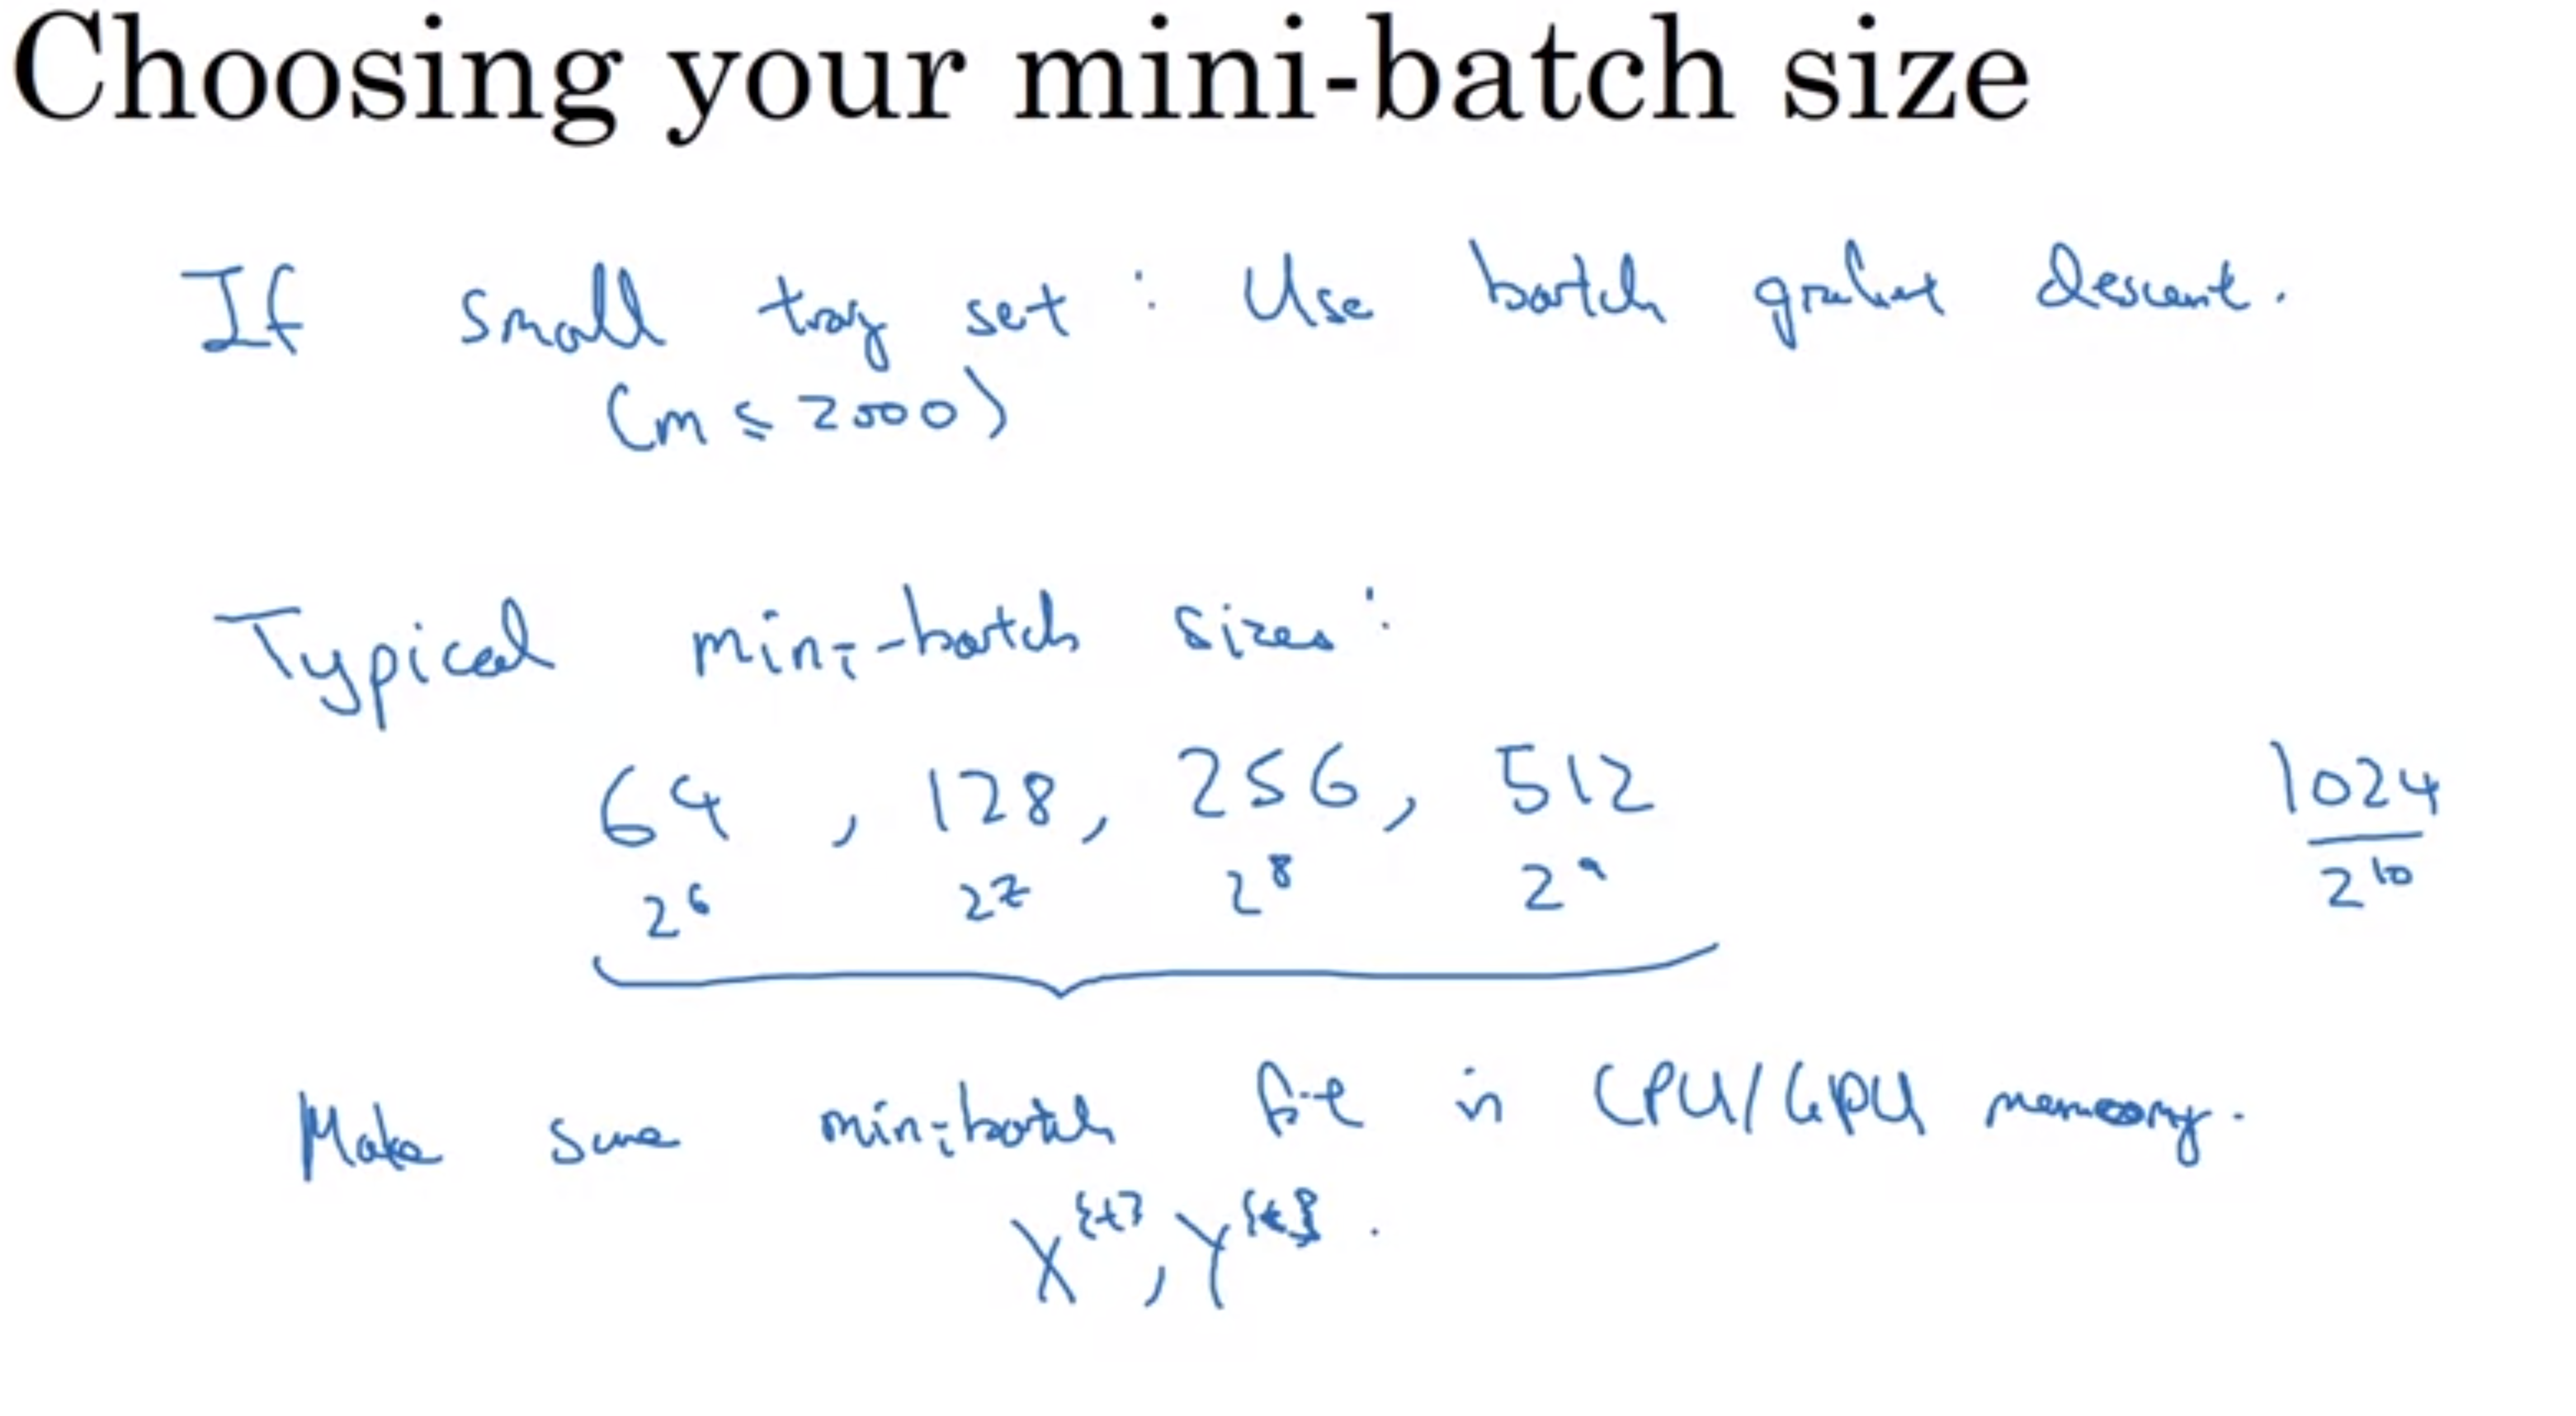 Choosing your mini-batch size
If small trag set : Use batch gradient descent.
(m ≤ 2000)
Typical mini-batch sizes :
64 , 128, 256, 512 1024
2⁶ 2⁷ 2⁸ 2⁹ 2¹⁰
Make sure minibatch fit in CPU/GPU memory.
X^{t}, Y^{t}.